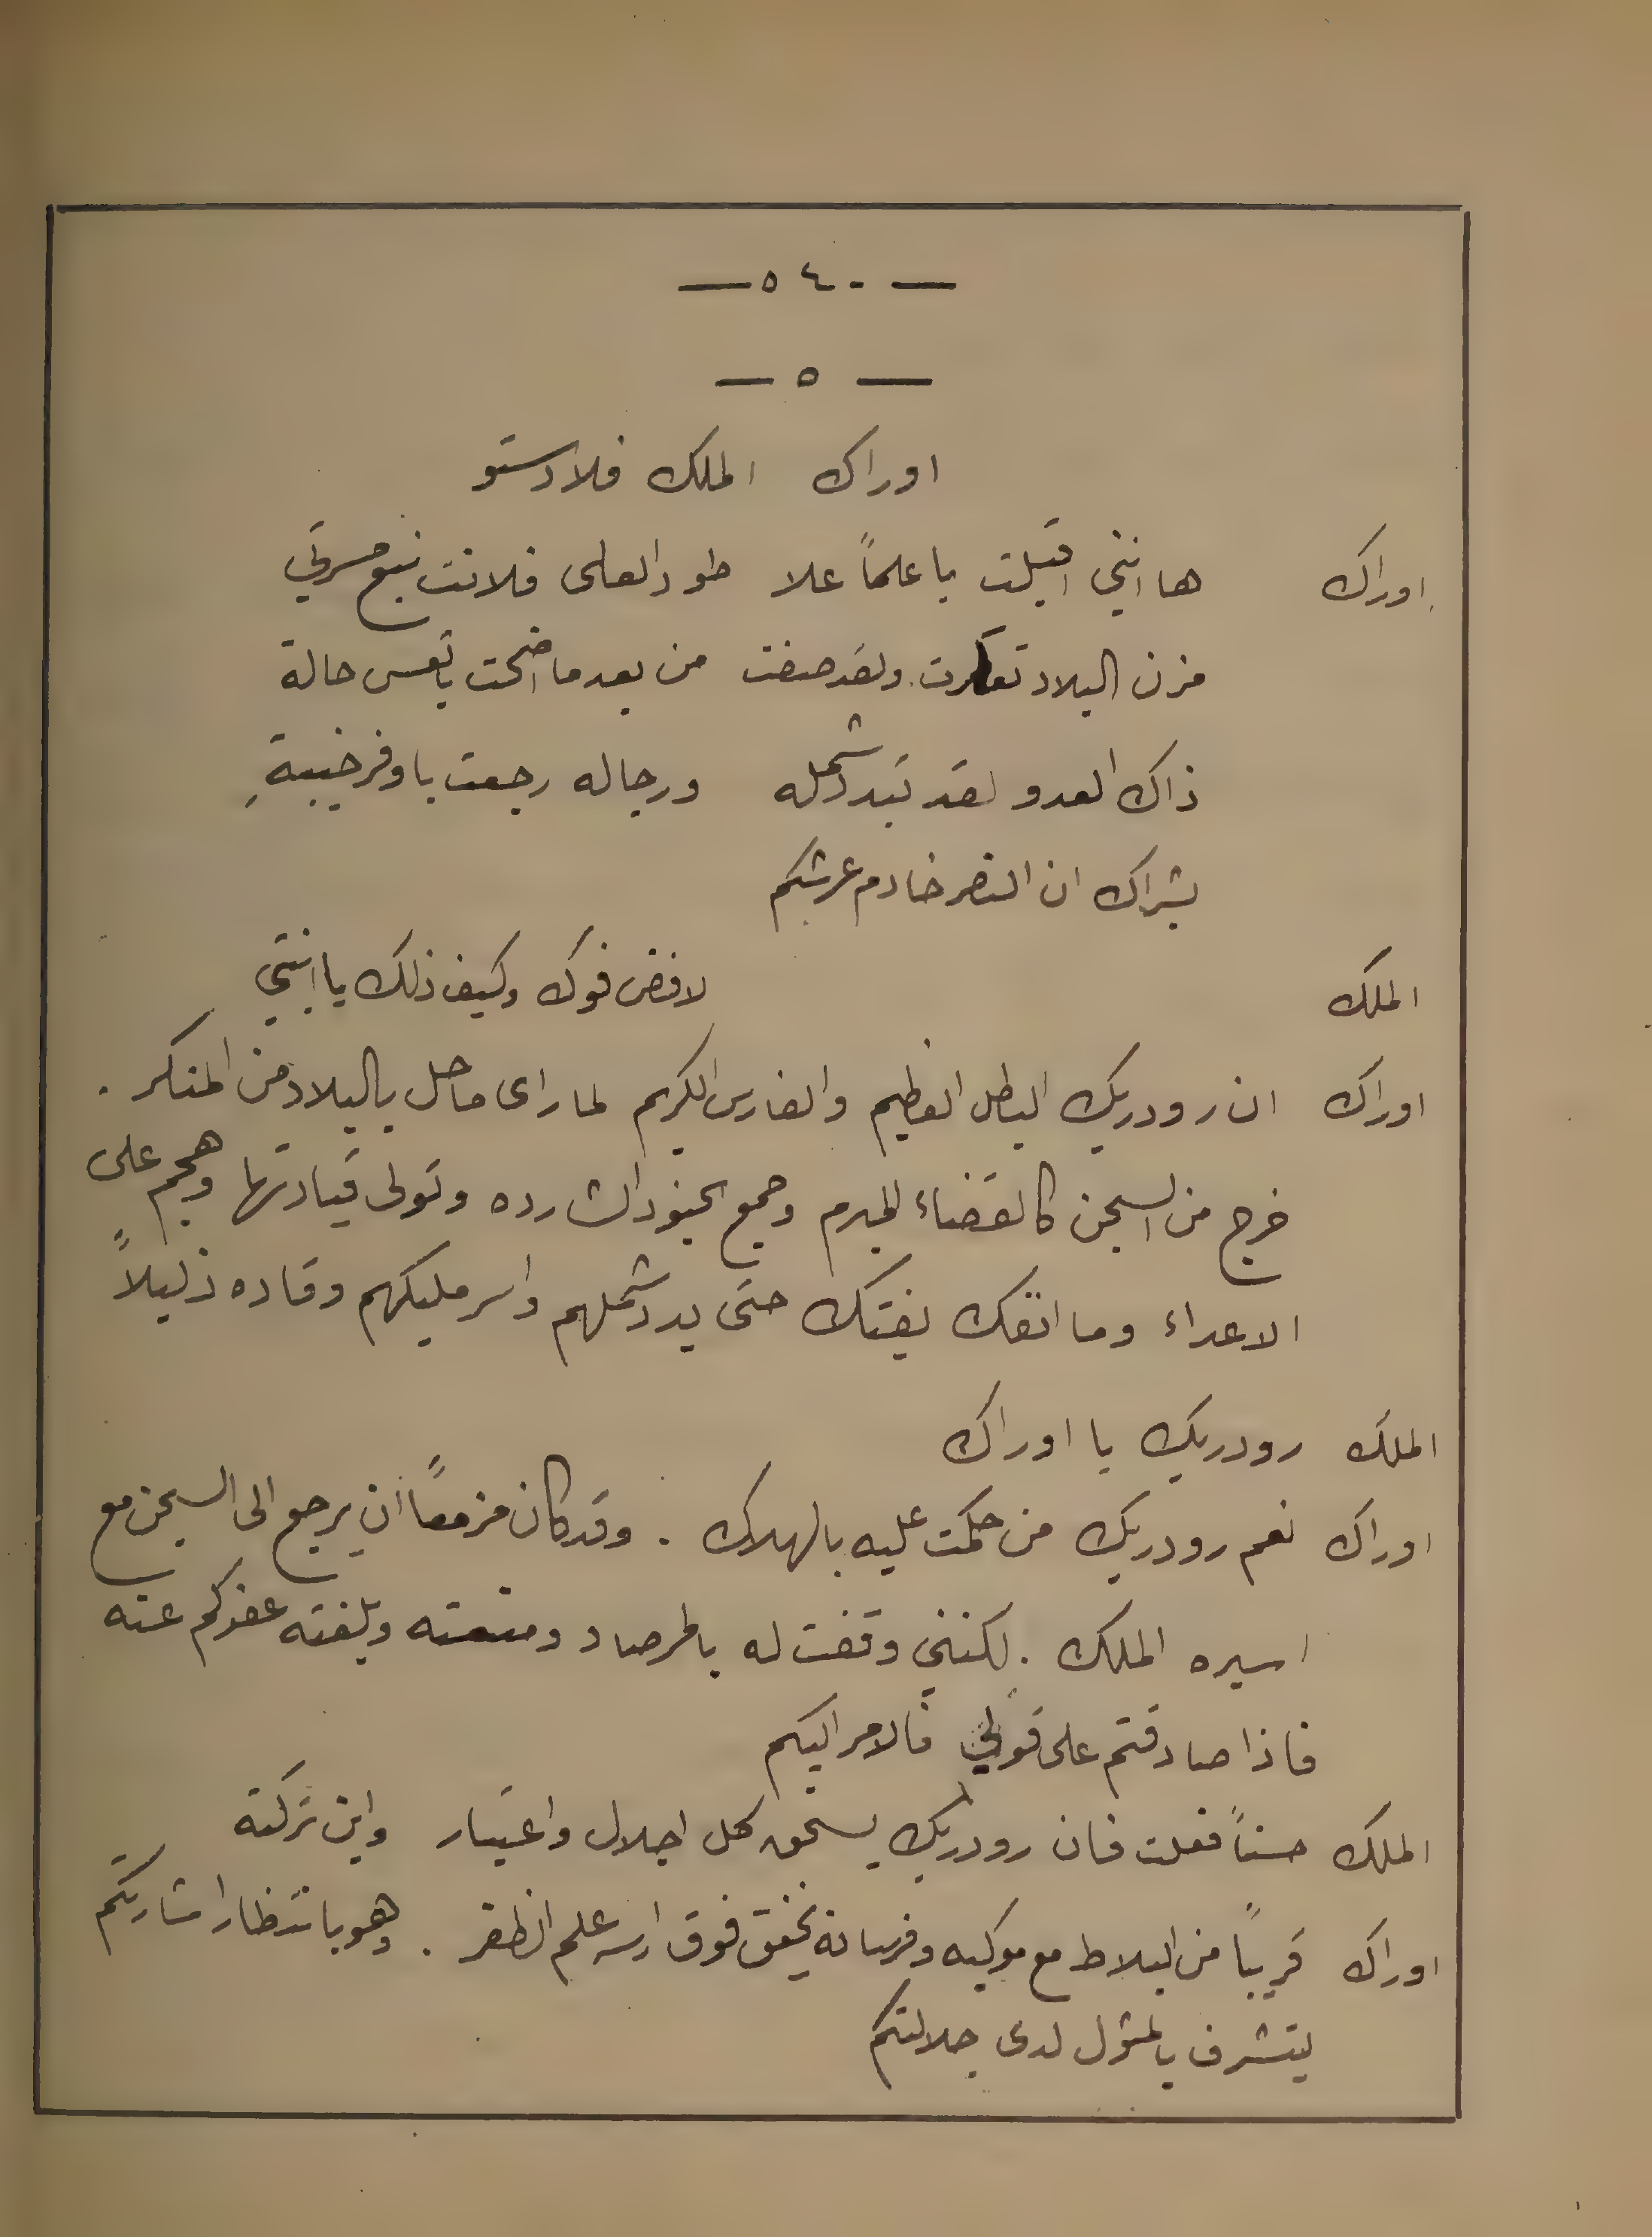 — ٥٤٠ —
— ٥ —
اوراك الملك فلادستو
اوراك ها انني اقبلت يا علماً علا طود العلى فلانت نبع مسرتي
مزن البلاد تعكرت ولقد صفت من بعد ما اضحت باتعس حالة
ذاك العدو لقد تبدد شمله ورجاله رجعت باوفر خيبةِ
بشراك ان النصر خادم عرشكم
الملك لا فض فوك وكيف ذلك يا ابنتي
اوراك ان رودريك البطل العظيم والفارس الكريم لما راى ما حل بالبلاد من المنكر .
خرج من السجن كالقضاء المبرم وجمع الجنود الشارده وتولى قيادتها وهجم على
الاعداء وما انفك يفتك حتى بدد شملهم واسر مليكهم وقاده ذليلاً
الملك رودريك يا اوراك
اوراك نعم رودريك من حكمت عليه بالهلاك . وقد كان مزمعاً ان يرجع الى السجن مع
اسيره الملك . لكنني وقفت له بالمرصاد ومنعته وبلغته عفوكم عنه
فاذا صادقتم على قولي فالامر اليكم
الملك حسناً فعلت فان رودريك يستحق كل اجلال واعتبار واين تركته
اوراك قريباً من البلاط مع موكبه وفرسانه يخفق فوق راسه علم الظفر . وهو بانتظار اشارتكم
ليتشرف بالمثول لدى جلالتكم